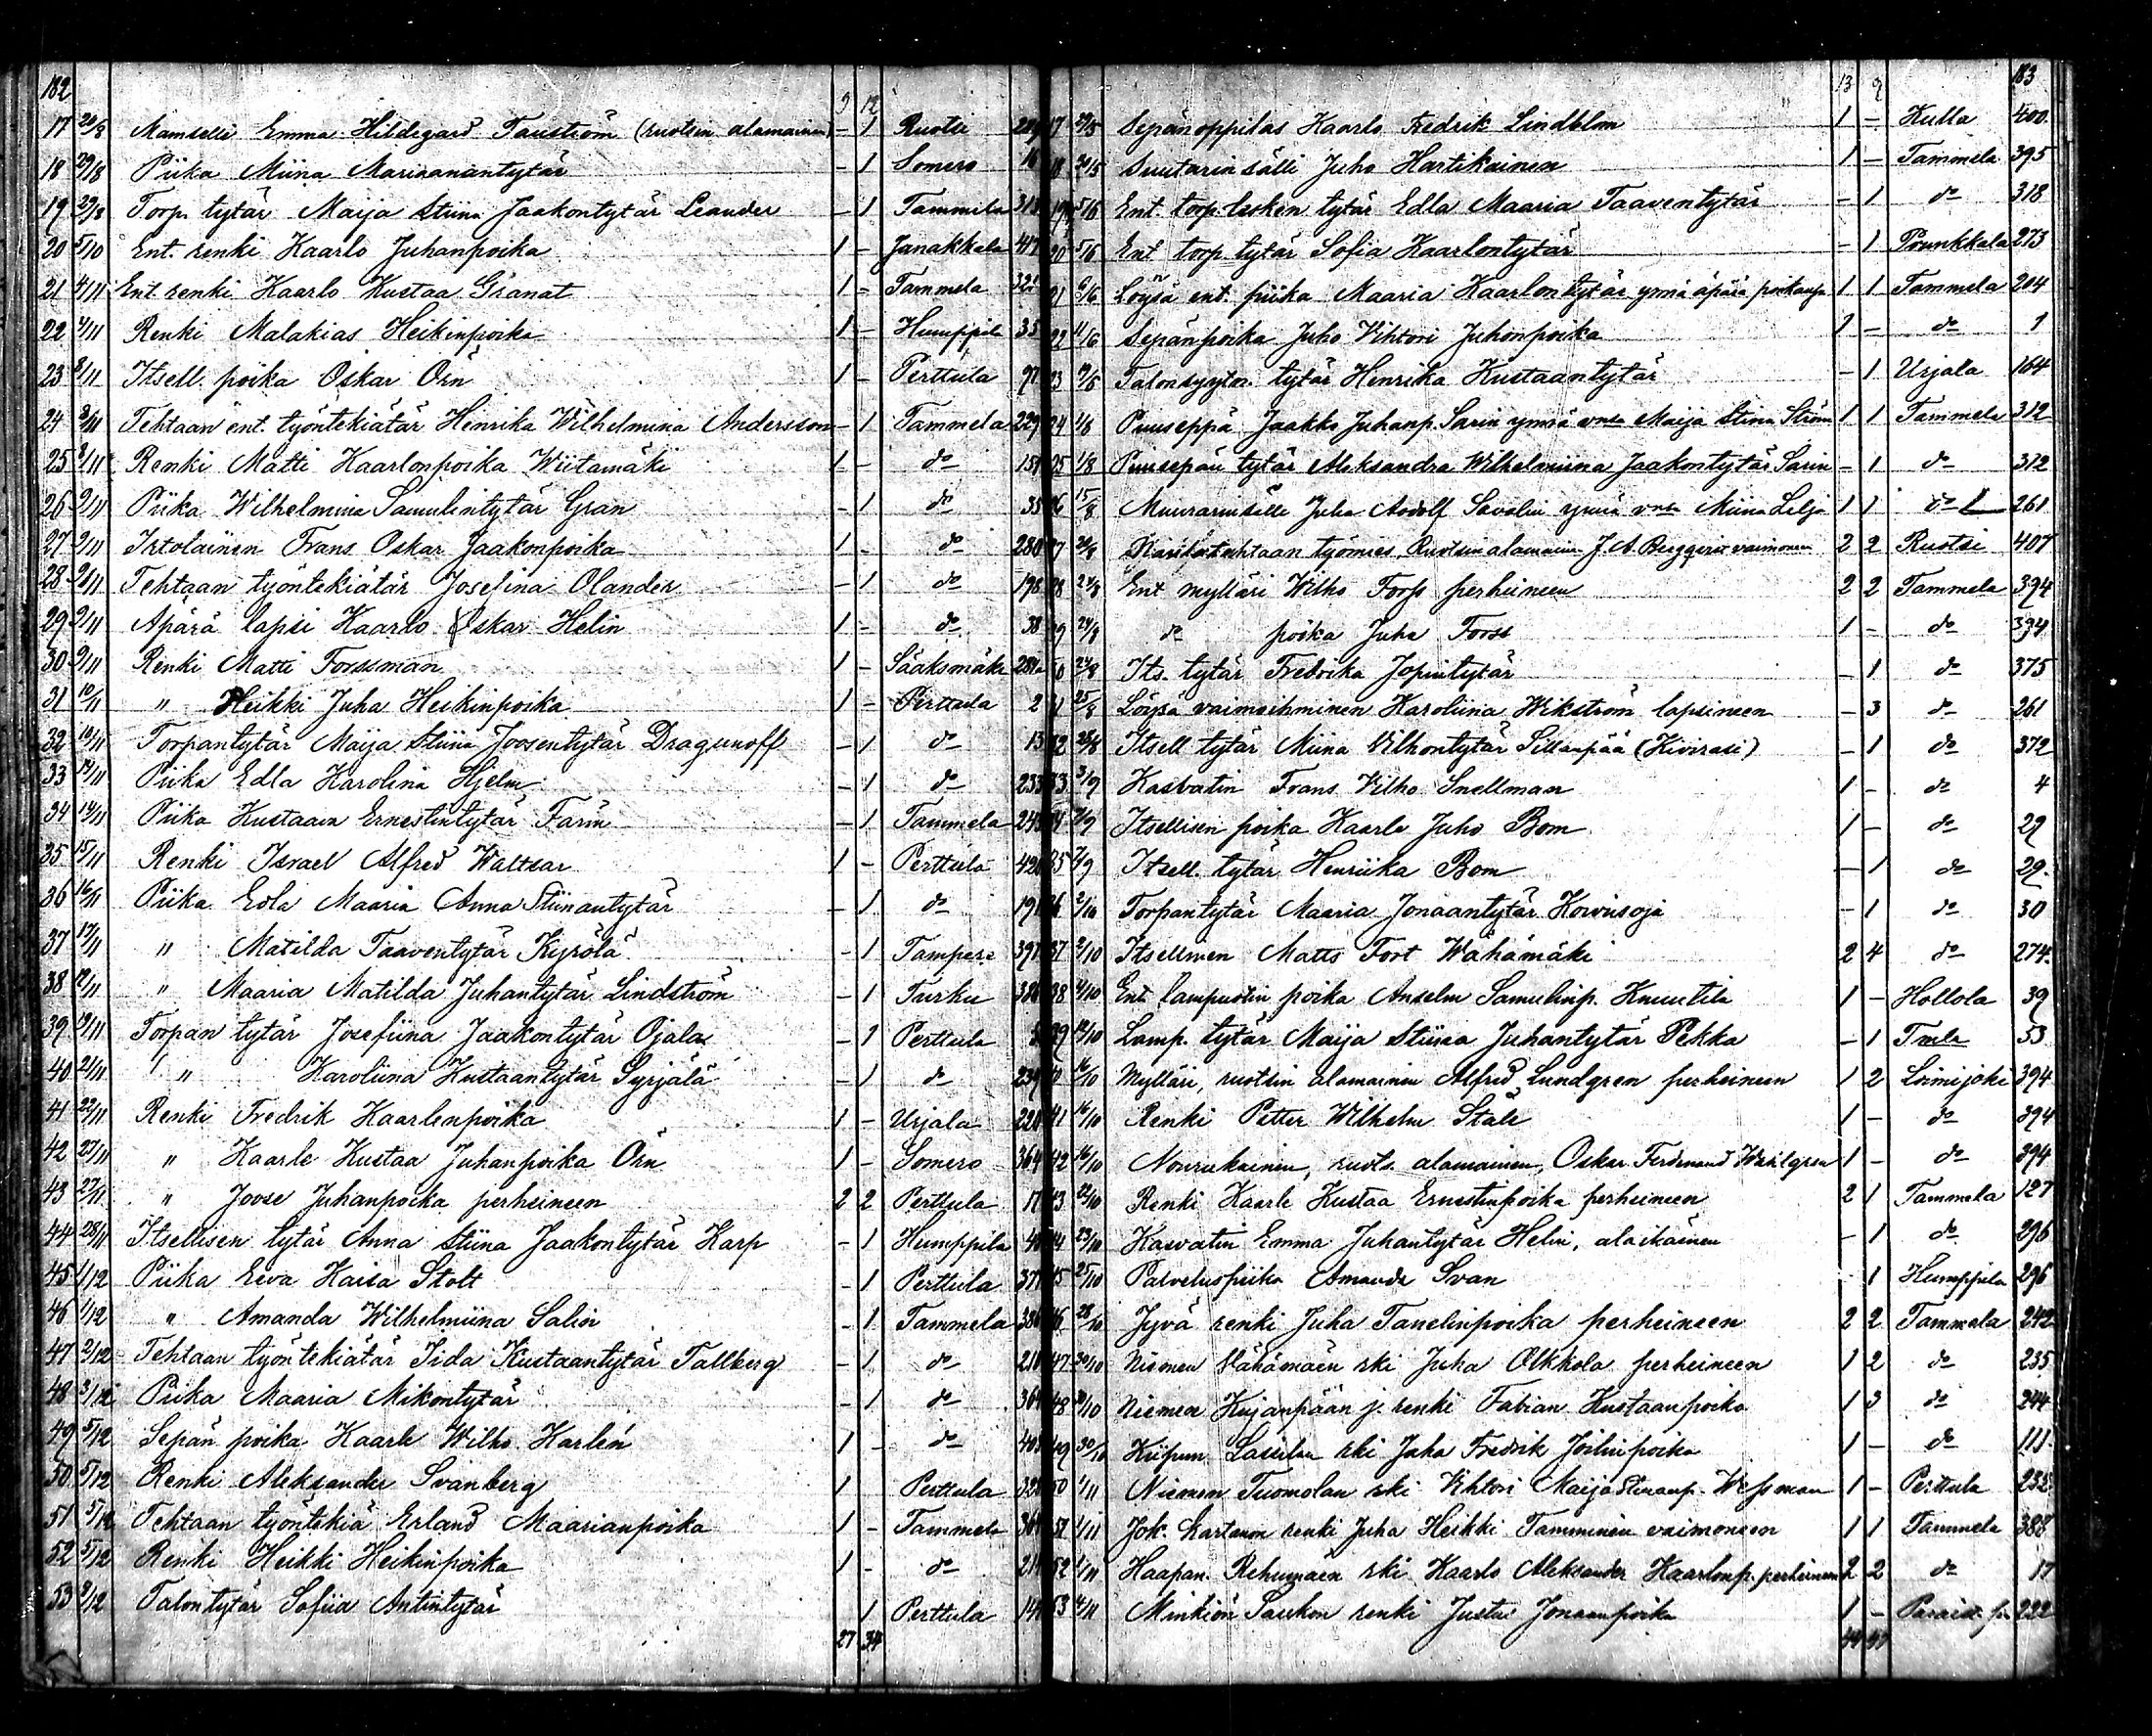 182
9 12
17 20/8 Mamselli Emma Hildegard Tauström (ruotsin alamainen) - 1 Ruotsi
18 29/8 Piika Miina Mariaanantytär - 1 Somero 16
19 29/8 Torp. tytär Maija Stiina Jaakontytär Leander - 1 Tammela 318
20 5/10 Ent. renki Kaarlo Juhanpoika 1 - Janakkala 417
21 4/11 Ent renki Kaarlo Kustaa Granat 1 - Tammela
22 4/11 Renki Malakias Heikinpoika 1 - Humppila 35
23 8/11 Itsell. poika Oskar Örn 1 - Perttula
24 8/11 Tehtaan ent. työntekiätär Henrika Wilhelmina Andersson - 1 Tammela 229
25 8/11 Renki Matti Kaarlonpoika Wiitamäki 1 - do
26 9/11 Piika Wilhelmina Samulintytär Gran - 1 do 35
27 9/11 Irtolainen Frans Oskar Jaakonpoika 1 - do 280
28 9/11 Tehtaan työntekiätär Josefina Olander - 1 do 198
29 9/11 Äpärä lapsi Kaarlo Oskar Helin 1 - do 38
30 9/11 Renki Matti Forssman 1 - Sääksmäki
31 10/11 " Heikki Juha Heikinpoika 1 - Perttula 2
32 10/11 Torpantytär Maija Stiina Joosentytär Dragunoff - 1 do 13
33 14/11 Piika Edla Karolina Hjelm - 1 do 233
34 14/11 Piika Kustaava Ernestintytär Farin - 1 Tammela 243
35 15/11 Renki Israel Alfred Waltsar 1 - Perttula 420
36 16/11 Piika Edla Maaria Anna Stiinantytär - 1 do 191
37 17/11 " Matilda Taaventytär Kyrölä - 1 Tampere 397
38 17/11 " Maaria Matilda Juhantytär Lindström - 1 Turku
39 19/11 Torpan tytär Josefiina Jaakontytär Ojala - 1 Perttula
40 21/11 " Karoliina Kustaantytär Syrjälä - 1 do 234
41 22/11 Renki Fredrik Kaarlenpoika 1 - Urjala 220
42 27/11 " Kaarle Kustaa Juhanpoika Örn 1 - Somero 364
43 27/11 " Joose Juhanpoika perheineen 2 2 Perttula 17
44 28/11 Itsellisen tytär Anna Stiina Jaakontytär Karp - 1 Humppila
45 1/12 Piika Eeva Kaisa Stolt - 1 Perttula 371
46 1/12 " Amanda Wilhelmiina Salin - 1 Tammela 386
47 2/12 Tehtaan työntekiätär Iida Kustaantytär Tallberg - 1 do 210
48 3/12 Piika Maaria Mikontytär - 1 do
49 5/12 Sepän poika Kaarle Wilho Harlén 1 - do
50 5/12 Renki Aleksander Svanberg 1 Perttula
51 5/12 Tehtaan työntekiä Erland Maarianpoika 1 - Tammela
52 5/12 Renki Heikki Heikinpoika 1 - do
53 9/12 Talontytär Sofiia Antintytär 1 Perttula
27 34
183
13 9
17 29/5 Sepänoppilas Kaarlo Fredrik Lindblom 1 - Kulla 400.
18 30/5 Suutarinsälli Juho Hartikainen 1 - Tammela 395
19 5/6 Ent. torp. lesken tytär Edla Maaria Taaventytär - 1 do 318
20 5/6 Ent torp. tytär Sofia Kaarlontytär - 1 Prunkkala 273
21 6/6 Löysä ent. piika Maaria Kaarlontytär ynnä äpärä poikansa 1 1 Tammela 204
22 11/6 Sepänpoika Juho Vihtori Juhonpoika 1 - do 1
23 Talonsyytn. tytär Henrika Kustaantytär - 1 Urjala 164
24 1/8 Puuseppä Jaakko Juhanp. Sarin ynnä vmo Maija Stina Ström 1 1 Tammela 312
25 1/8 Puusepän tytär Aleksandra Wilhelmiina Jaakontytär Sarin - 1 do 312
26 15/8 Muurarinsälli Juha Aadolf Savolin ynnä vmo Miina Lilja 1 1 do 261
27 20/8 tehtaan työmies, Ruotsin alamainen J. A. Berggren vaimoneen 2 2 Ruotsi 407
28 24/8 Ent mylläri Wilho Forss perheineen 2 2 Tammela 394
29 24/8 do poika Juha Forss 1 - do 394
30 24/8 Its. tytär Fredrika Jopintytär - 1 do 375
31 25/8 Löysä vaimoihminen Karoliina Wikström lapsineen - 3 do 261
32 28/8 Itsell tytär Miina Vilhontytär Sillanpää (Kivirasi) - 1 do 372
33 3/9 Kasvatin Frans Vilho Snellman 1 - do 4
34 7/9 Itsellisen poika Kaarle Juho Bom 1 - do 29
35 7/9 Itsell. tytär Henriika Bom - 1 do 29.
36 2/10 Torpantytär Maaria Jonaantytär Koivusoja - 1 do 30
37 2/10 Itsellinen Matts Fort Wähämäki 2 4 do 274.
38 4/10 Ent. lampuotin poika Anselm Samulinp. Knuutila 1 - Hollola 39
39 12/10 Lamp. tytär Maija Stiina Juhantytär Pekka - 1 Tmla 53
40 16/10 Mylläri, ruotsin alamainen Alfred Lundgren perheineen 1 2 Loimijoki 394
41 16/10 Renki Petter Wilhelm Ståle 1 - do 394
42 16/10 Nuorukainen, ruots. alamainen, Oskar Ferdinand Wahlgren 1 - do 394
43 22/10 Renki Kaarle Kustaa Ernestinpoika perheineen 2 1 Tammela 127
44 23/10 Kasvatin Emma Juhantytär Helin, alaikäinen - 1 do 296
45 25/10 Palveluspiika Amanda Svan 1 Humppila 296
46 28/10 Jyvä renki Juha Tanelinpoika perheineen 2 2 Tammela 242
47 30/10 Niemen Vähämäen rki Juha Olkkola perheineen 1 2 do 235
48 30/10 Niemen Kujanpään j. renki Fabian Kustaanpoika 1 3 do 244
49 30/10 Kiipun Lassilan rki Juha Fredrik 1 - do 111.
50 1/11 Niemen Tuomolan rki Vihtori Maija Stinanp. 1 - Perttula 235.
51 1/11 Jok. kartanon renki Juha Heikki Tamminen vaimoneen 1 1 Tammela 388
52 1/11 Haapan. Rehumäen rki Kaarlo Aleksander Kaarlonp. perheineen 2 2 do 17
53 4/11 Minkiön renki Justus Jonaanpoika 1 - 222